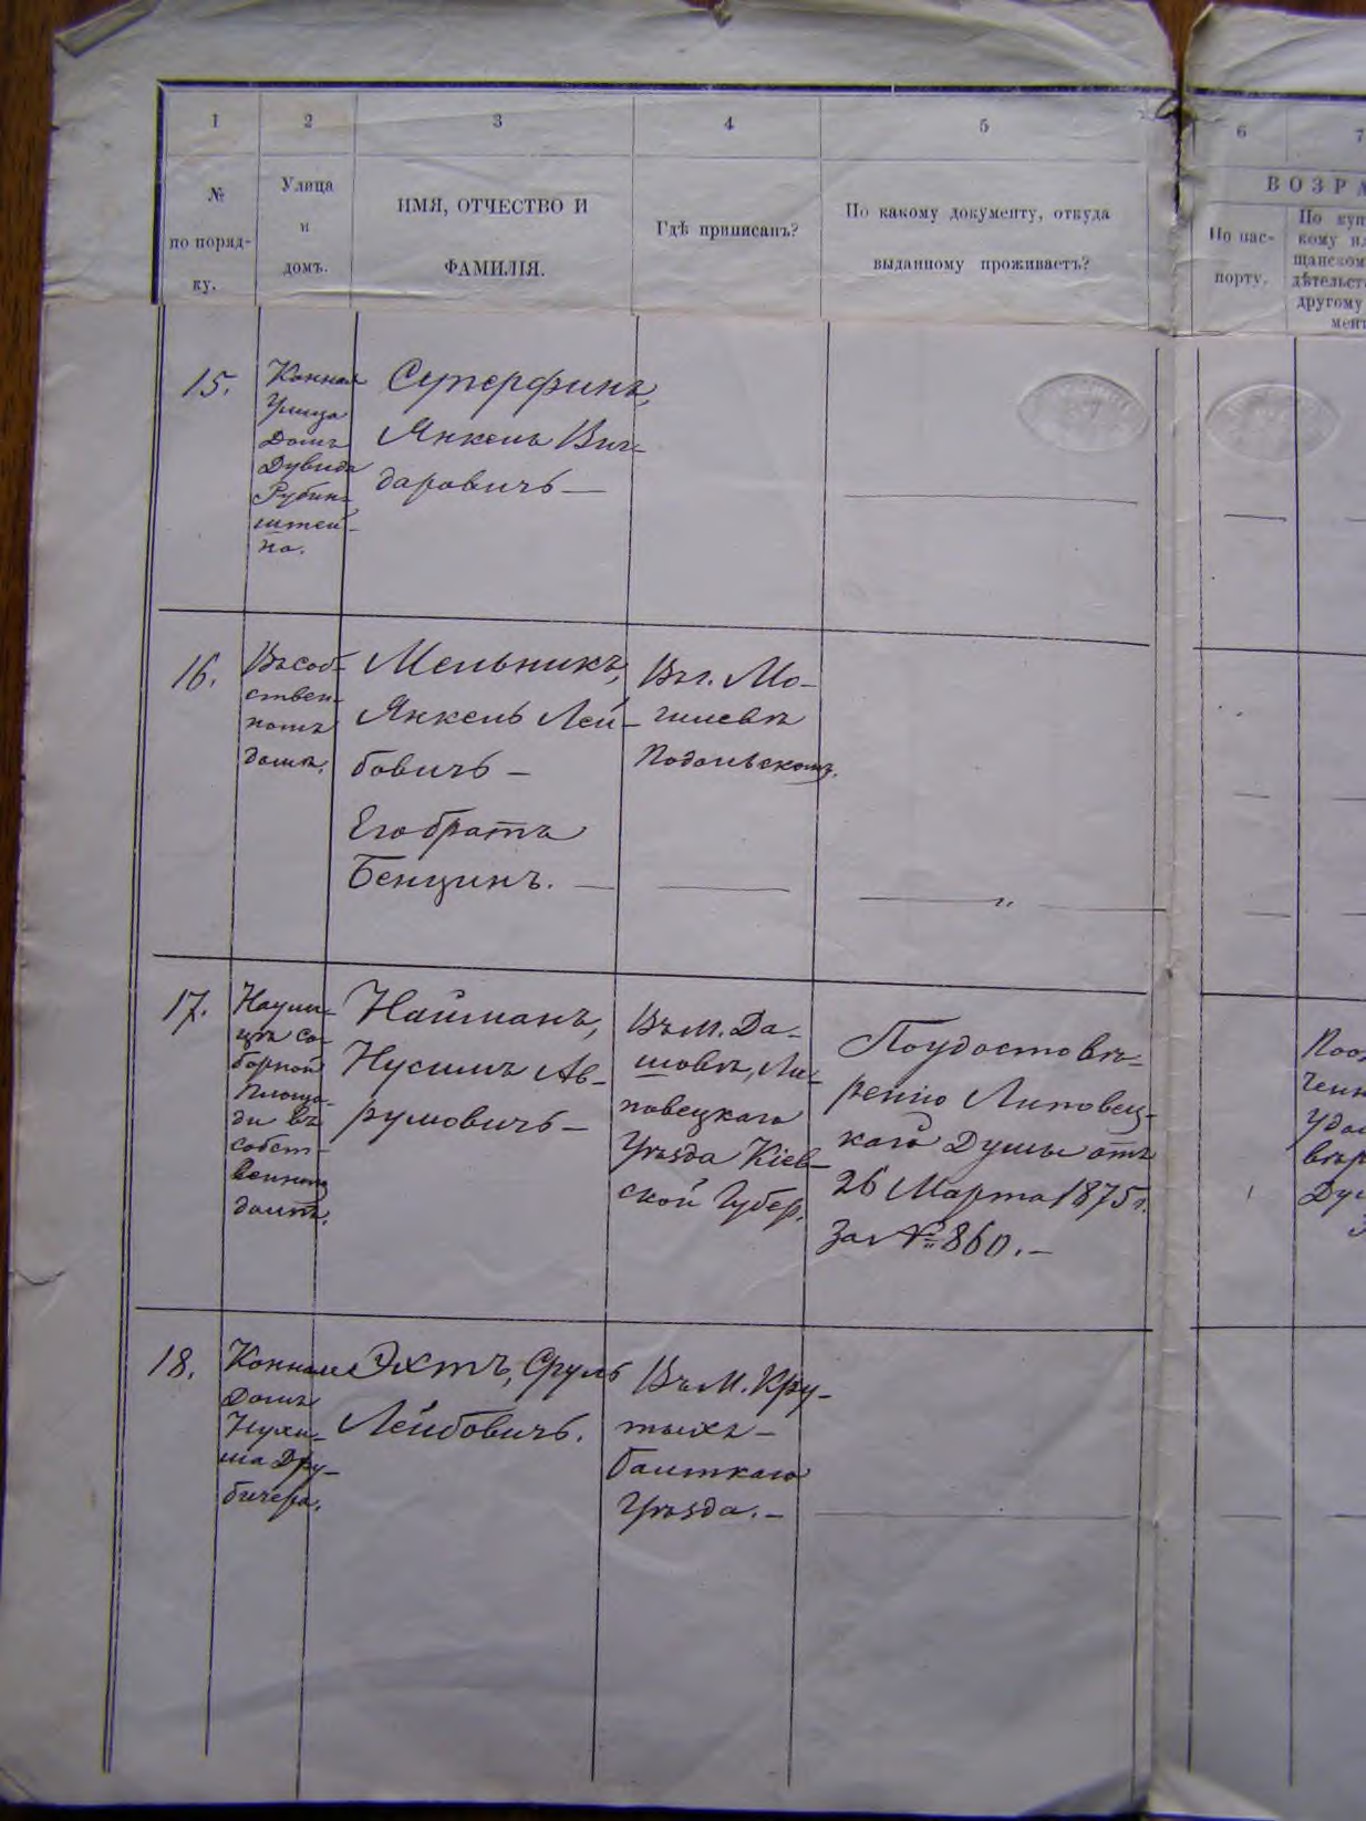 1
2
3
4
5
6
7
№
по поряд-
ку.
Улица
и
домъ.
ИМЯ, ОТЧЕСТВО И
ФАМИЛІЯ.
Гдѣ приписанъ?
По какому документу, откуда
выданному проживаетъ?
ВОЗРА
По пас-
порту.
По куп
кому ил
щанском
дѣтельст
другому
мент
15.
Конная
Улица
Домъ
Дувида
Рубин-
штей-
на.
Суперфинъ,
Янкель Виг-
даровичъ —
16.
Въ соб-
ствен-
номъ
домѣ.
Мельникъ,
Янкель Лей-
бовичъ —
Его братъ
Бенцинъ. —
Въ г. Мо-
гилевѣ
Подольскомъ.
17.
со-
борной
Площа-
ди въ
собст-
венномъ
домѣ.
Найманъ,
Нусимъ Ав-
румовичъ —
Въ м. Да-
шовѣ, Ли-
повецкаго
Уѣзда Кіев-
ской Губер.
По удостовѣ-
ренію Липовец-
кой Думы отъ
26 Марта 1875 г.
За № 860. —
Поо
Удос
вѣр
Дум
18.
Конная
Домъ
Нухи-
ма Дру-
бичера.
Эхтъ, Сруль
Лейбовичъ.
Въ М. Кру-
тыхъ —
Балтскаго
Уѣзда. —